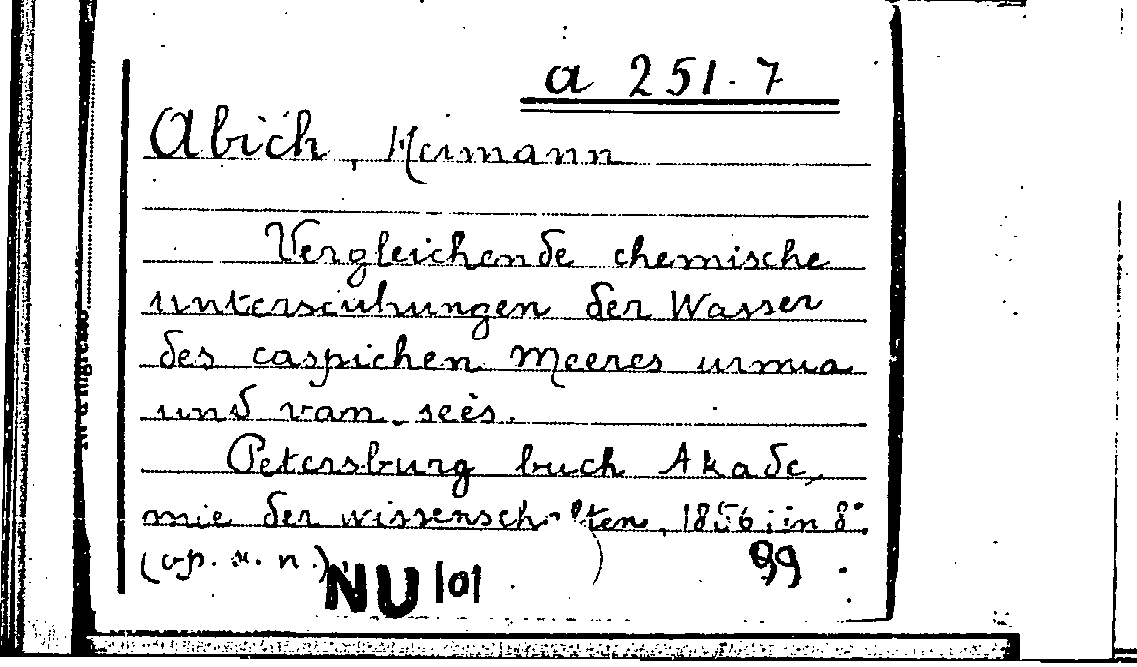 a 251.7
Abich, Hermann
Vergleichende chemische
unterscuhungen der Wasser
des caspichen Meeres urmia
und van-seès.
Petersburg buch Akade,
mie der wissenschaften, 1856; in 8°.
(op. x. n.)
NU 101
99